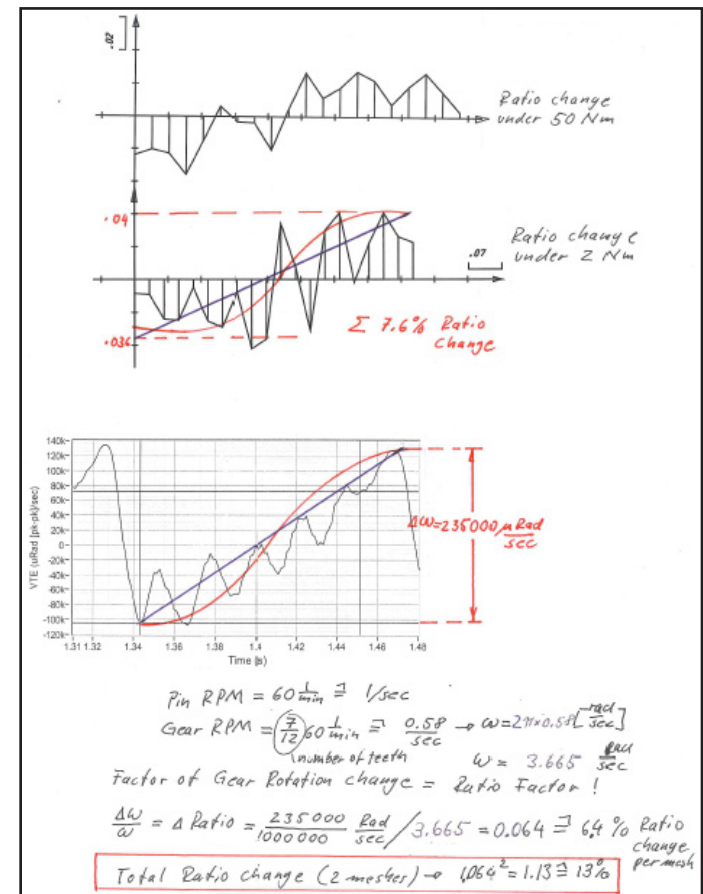 .02
Ratio change
under 50 Nm
.04
Ratio change
under 2 Nm
.07
.036
Σ 7.6% Ratio
change
140k
120k
100k
80k
60k
40k
20k
0
-20k
-40k
-60k
-80k
-100k
-120k
VTE (uRad [pk-pk]/sec)
1.31 1.32 1.34 1.36 1.38 1.4 1.42 1.44 1.46 1.48
Time (s)
Δω=235000 μRad/sec
Pin RPM = 60 1/min ≙ 1/sec
Gear RPM = (7/12) 60 1/min ≙ 0.58/sec → ω=2π×0.58[rad/sec]
number of teeth
ω = 3.665 rad/sec
Factor of Gear Rotation change = Ratio Factor !
Δω/ω = Δ Ratio = 235000/1000000 Rad/sec / 3.665 = 0.064 ≙ 6.4 % Ratio
change
per mesh
Total Ratio change (2 meshes) → 1.064² = 1.13 ≙ 13%